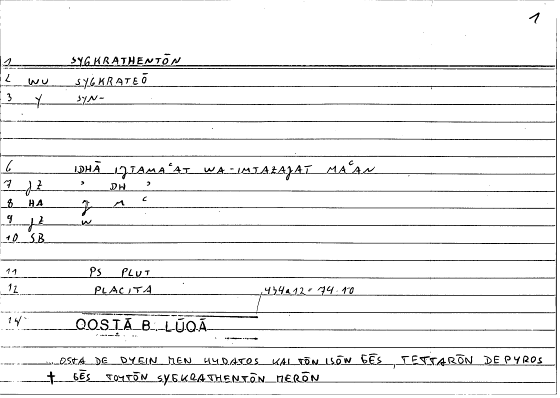 1
1 SYGKRATHENTŌN
2 WU SYGKRATEŌ
3 Y SYN-
6 IDHĀ IJTAMAʿAT WA-IMTAZAJAT MAʿAN
7 JZ ʾ DH ʾ
8 HA J M ʿ
9 JZ W
10 SB
11 PS PLUT
12 PLACITA 434a12 = 74.10
14 QOSṬĀ B. LŪQĀ
OSTA DE DYEIN MEN HYDATOS KAI TŌN ISŌN GĒS, TETTARŌN DE PYROS
† GĒS TOYTŌN SYGKRATHENTŌN MERŌN